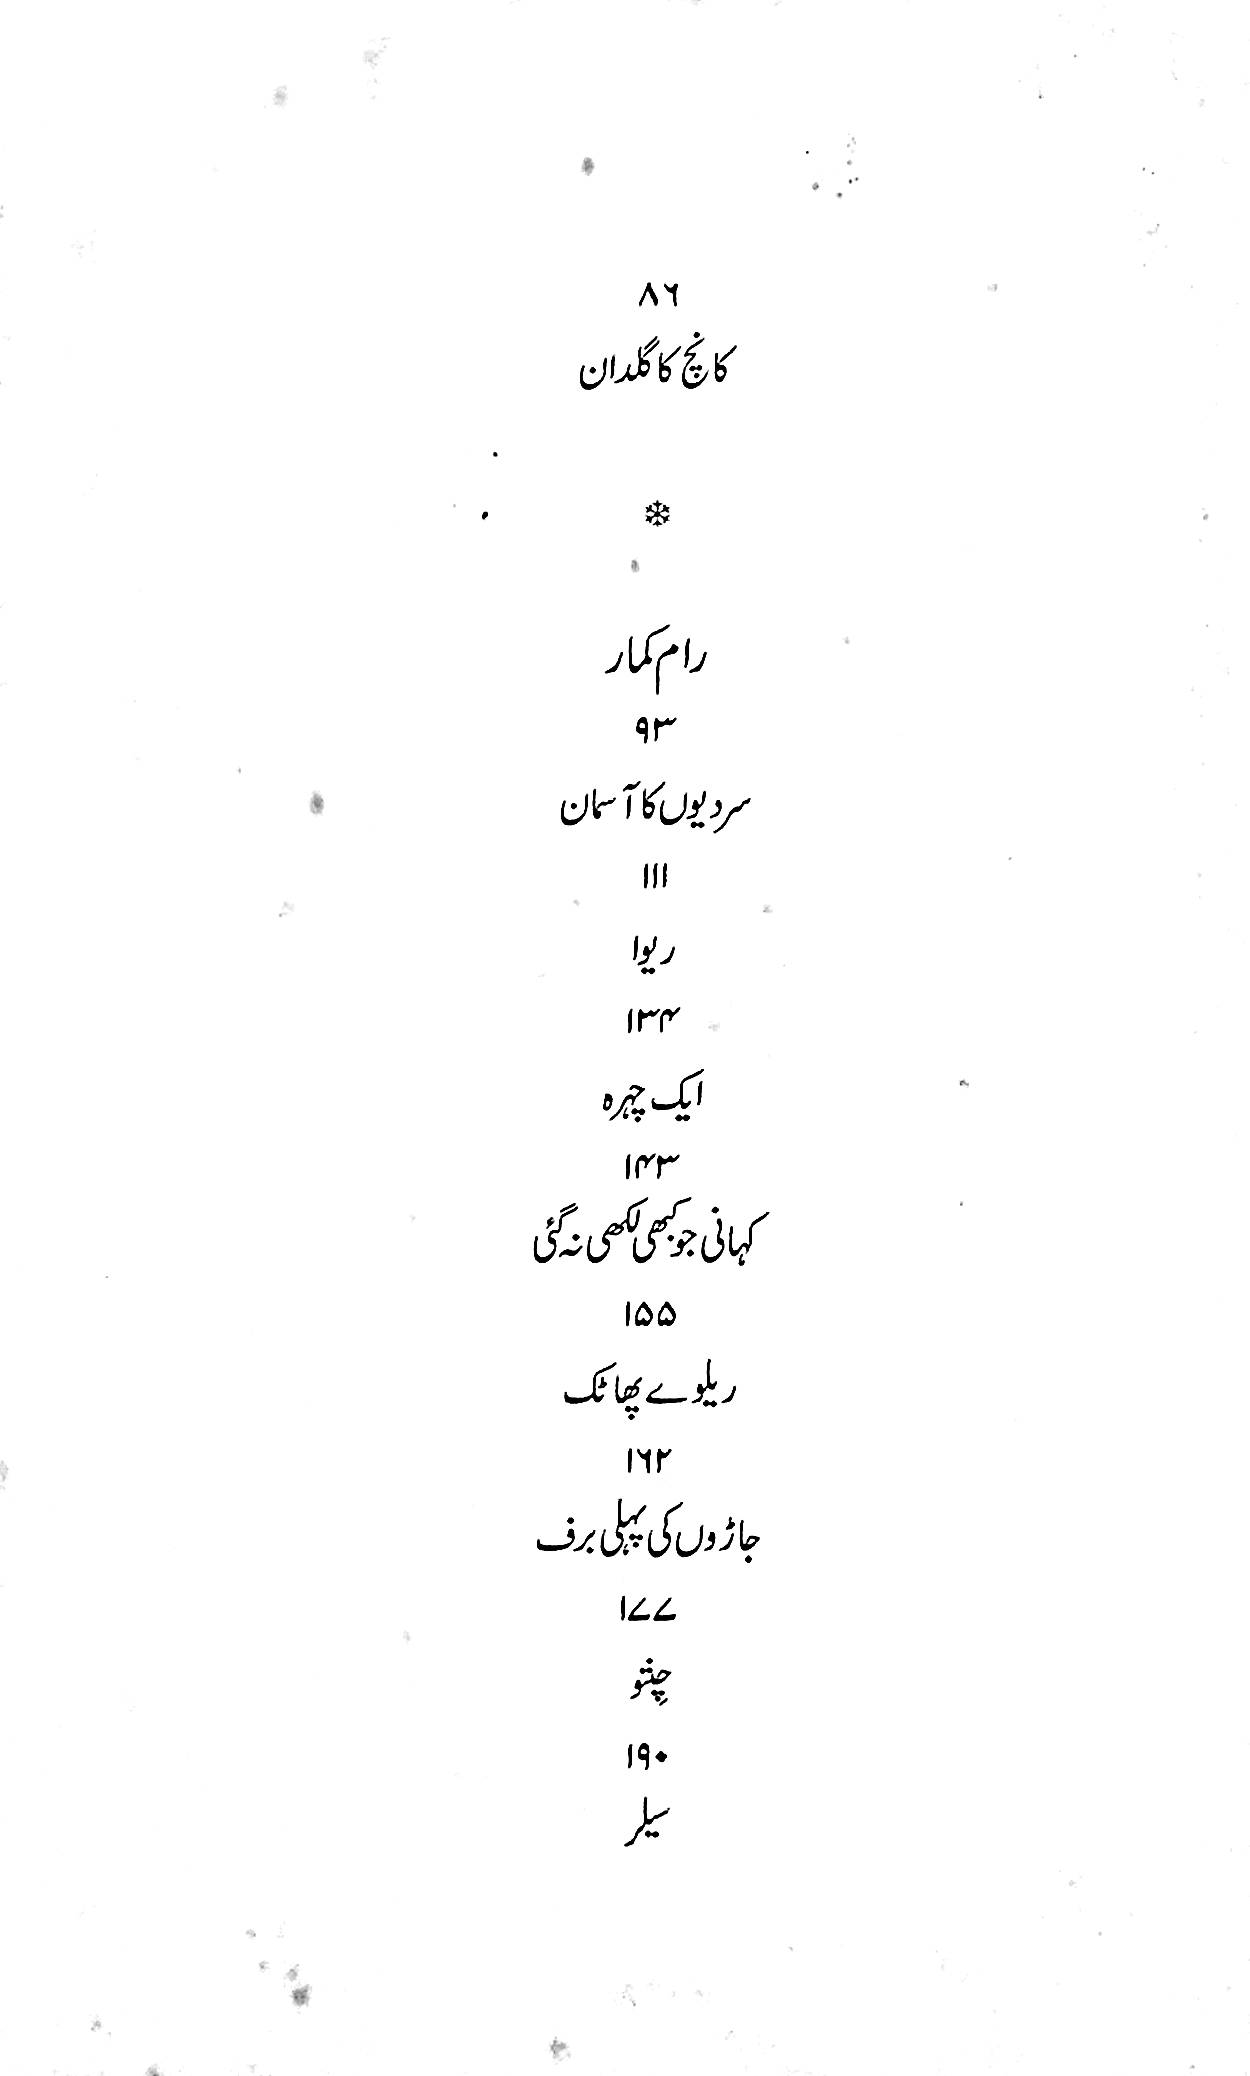 ۸۶
کانچ کا گلدان
❄
رام کمار
۹۳
سردیوں کا آسمان
۱۱۱
ریوا
۱۳۴
ایک چہرہ
۱۴۳
کہانی جو کبھی لکھی نہ گئی
۱۵۵
ریلوے پھاٹک
۱۶۲
جاڑوں کی پہلی برف
۱۷۷
چِنتو
۱۹۰
سیلر